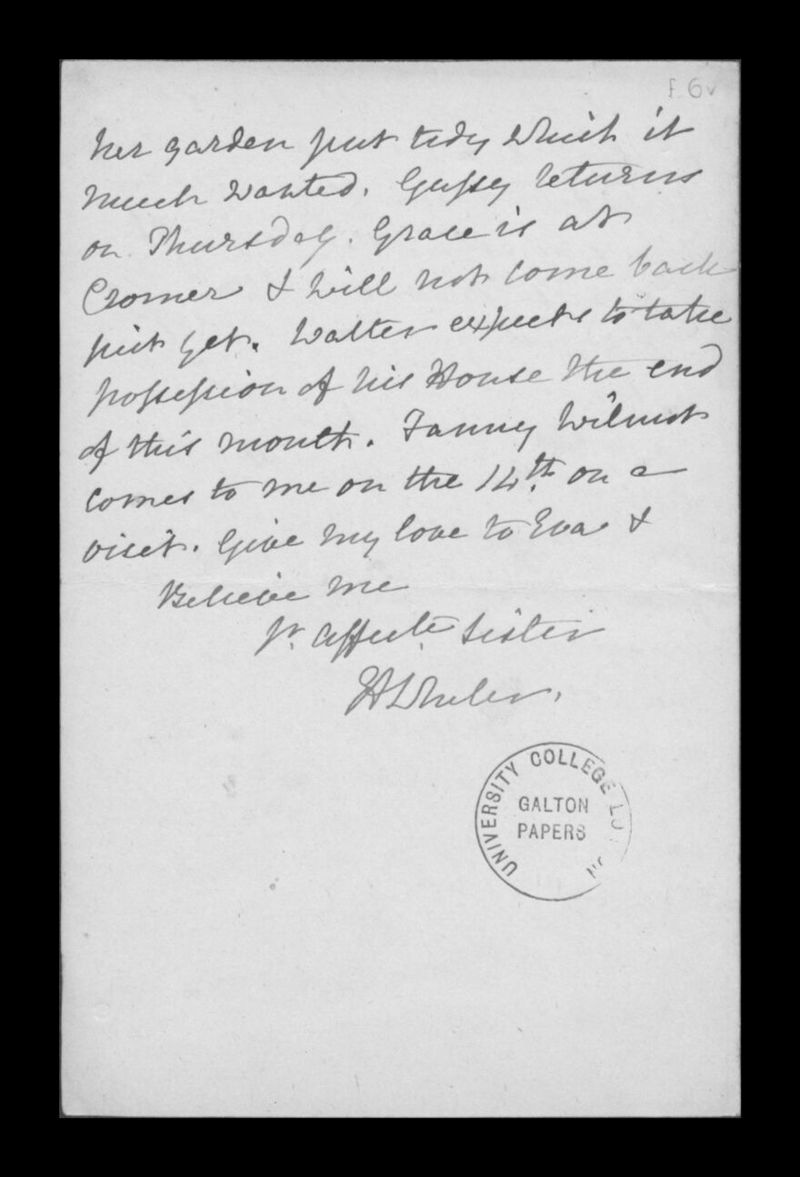 F 6v
her garden put tidy which it
much wanted. Gussy returns
on Thursday. Grace is at
Cromer & will not come back
just yet. Walter expects to take
possession of his House the end
of this month. Fanny Wilmot
comes to me on the 14th on a
visit. Give my love to Eva &
Believe me
Yr. affecte. Sister
EAWheler.
UNIVERSITY COLLEGE LONDON
GALTON
PAPERS